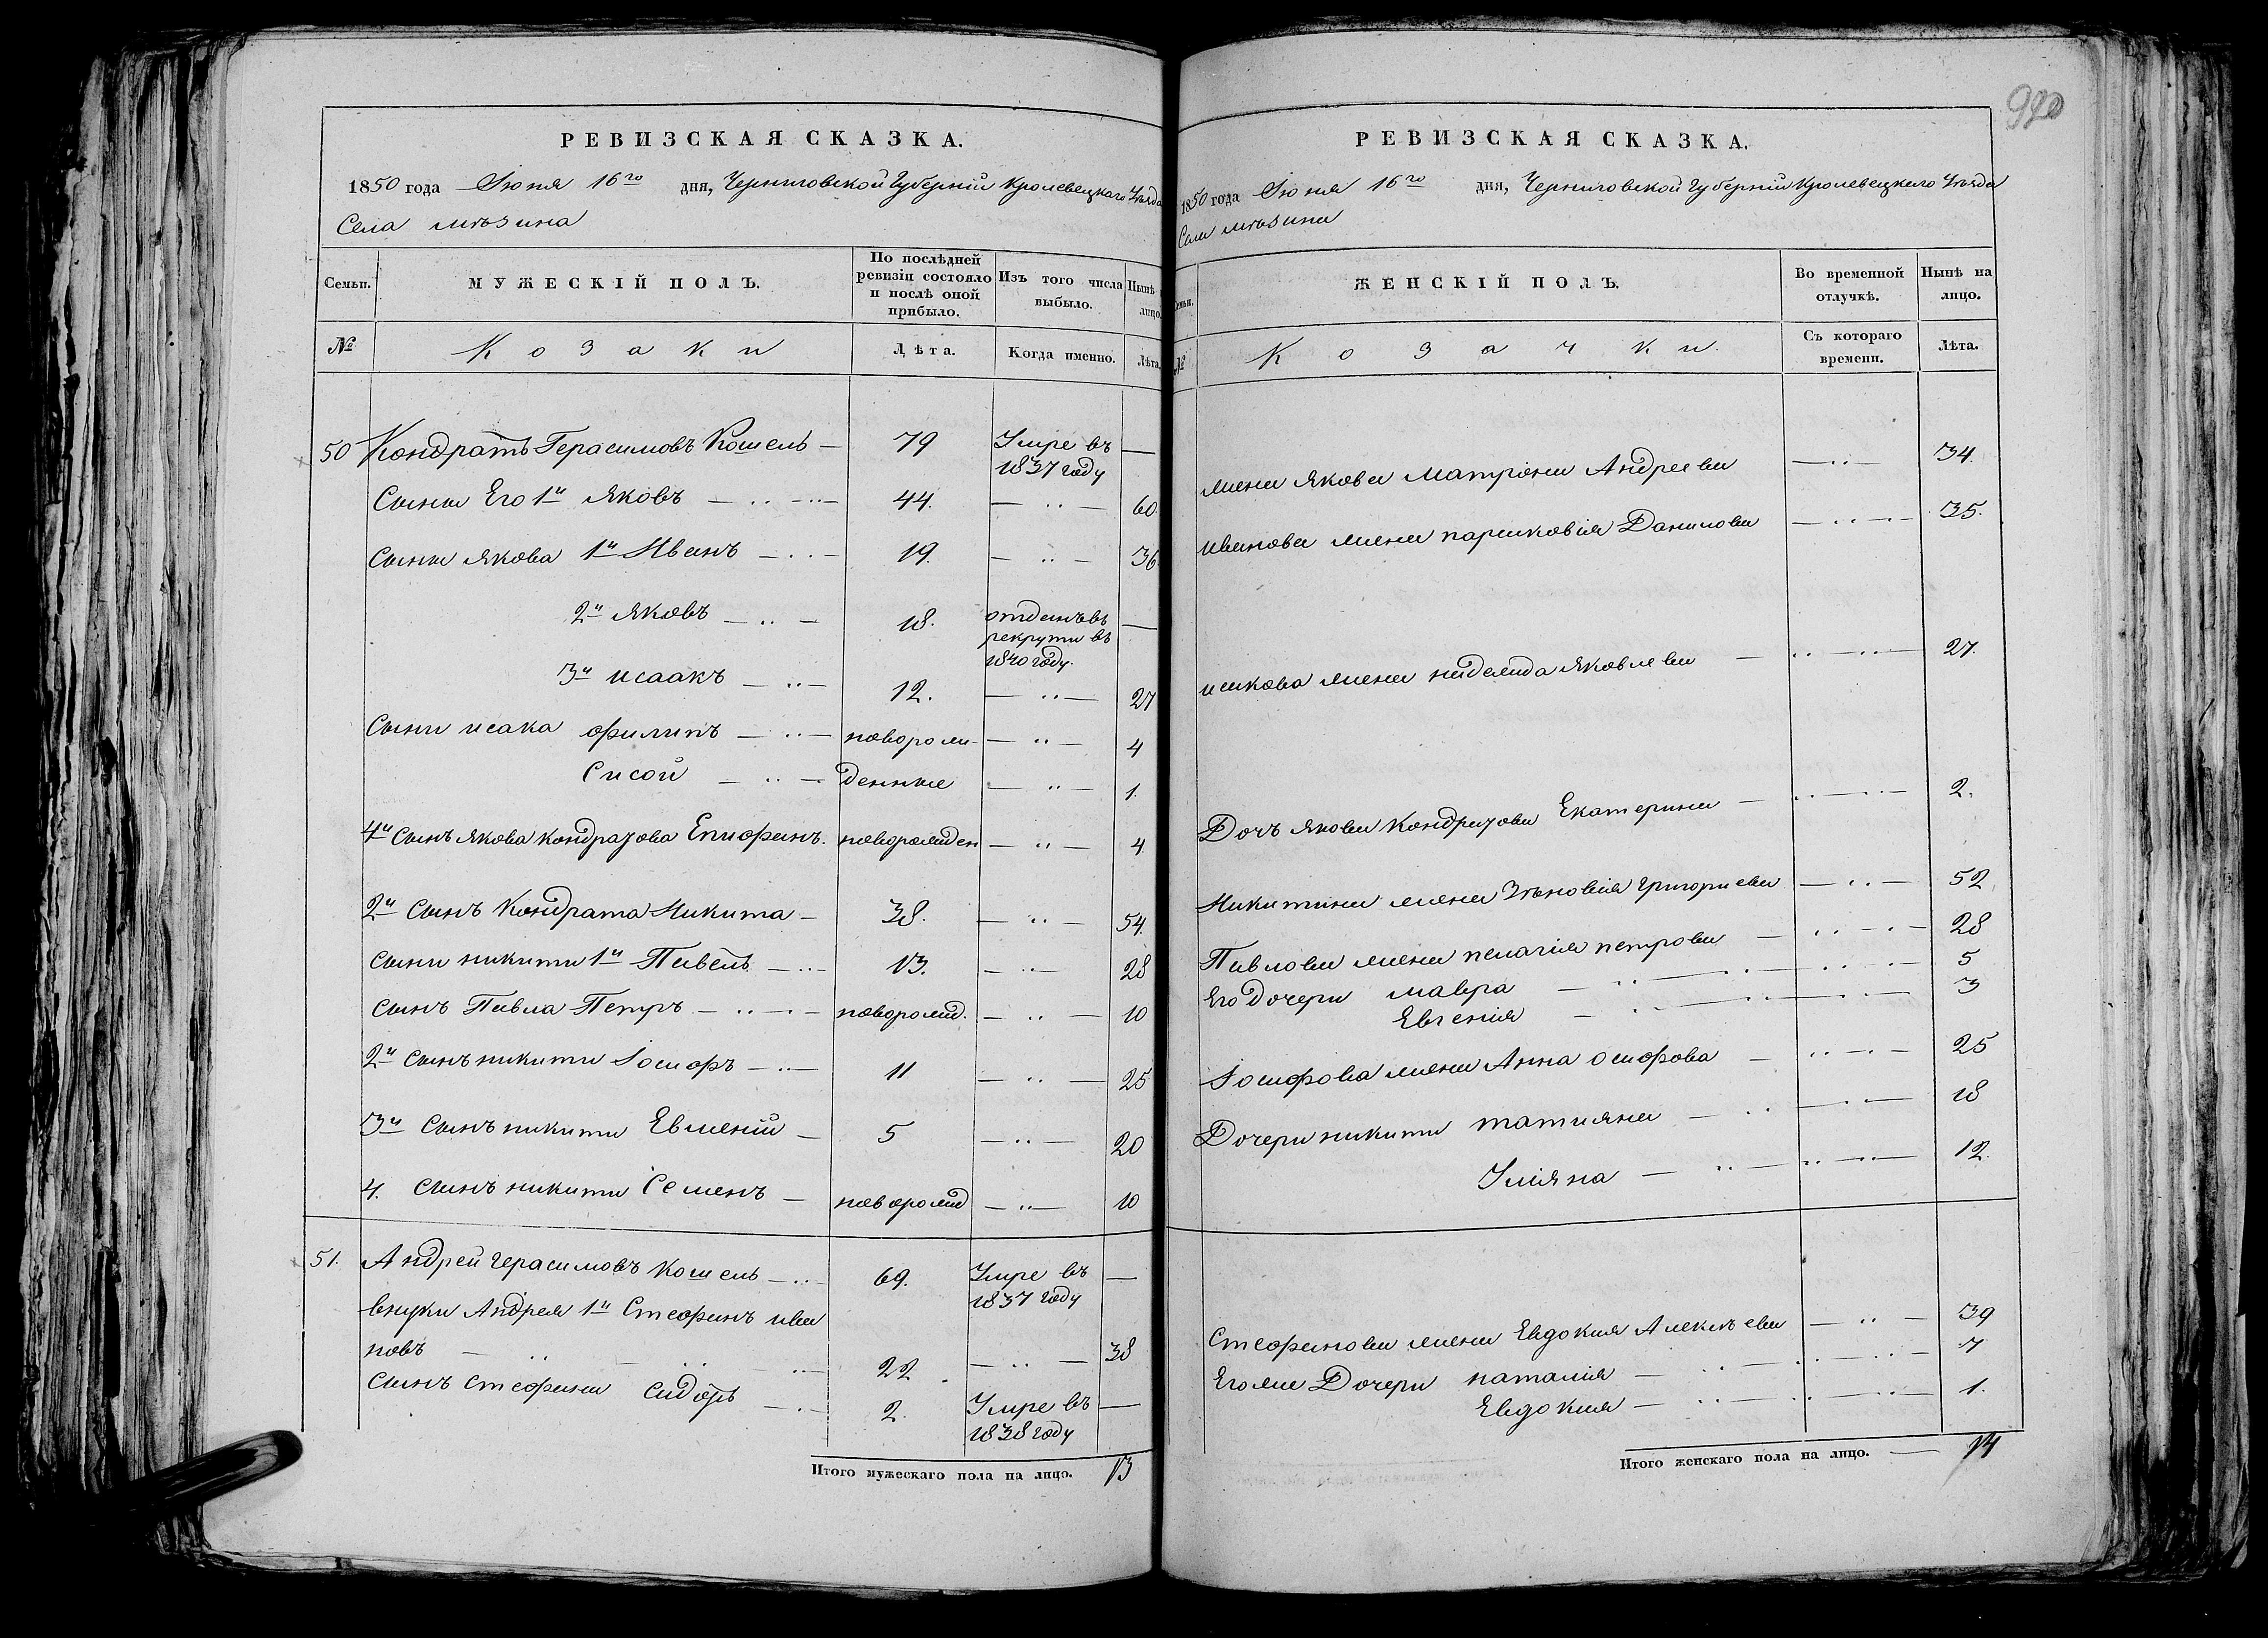 РЕВИЗСКАЯ СКАЗКА.
1850 года Июня 16го дня, Черниговской Губернiи Кролевецкаго Уѣзда
Села мѣзина
Семьи. МУЖЕСКIЙ ПОЛЪ. По послѣдней ревизiи состояло и послѣ оной прибыло. Изъ того числа выбыло. Нынѣ лицо.
№ Козаки Лѣта. Когда именно. Лѣта.
50 Кондратъ Герасимовъ Кошель — 79 Умре въ 1837 году —
Сыны Его 1й Яковъ 44. 60.
Сыны Якова 1й Иванъ 19. 36.
2й Яковъ 18. отданъ въ рекруты въ 1840 году. —
3й исаакъ 12. 27
Сыни исака филипъ новорож- 4
Сисой денные 1.
4й Сынъ Якова Кондратова Епифанъ. новорожден 4.
2й Сынъ Кондрата Никита — 38. 54.
сыни никити 1й Павелъ 13. 28
сынъ Павла Петръ новорожд. 10
2й сынъ никити Iосифъ 11 25
3й сынъ никити Евменiй — 5 20
4. сынъ никити Семенъ — новорожд 10
51. Андрей герасимовъ Кошель 69. Умре въ 1837 году —
внуки Андрея 1й Стефанъ ива
новъ 22. 38
сынъ стефана Сидоръ 2. Умре въ 1838 году —
Итого мужескаго пола на лицо. 13
РЕВИЗСКАЯ СКАЗКА.
1850 года Июня 16го дня, Черниговской Губернiи Кролевецкаго Уѣзда
Села мѣзина
Семьи. ЖЕНСКIЙ ПОЛЪ. Во временной отлучкѣ. Нынѣ на лицо.
№ Козачки. Съ котораго времени. Лѣта.
жена Якова Матрона Андреева 34.
иванова жена парасковiя Данилова 35.
исакова жена надежда Яковлева 27.
Дочъ Якова Кондратова Екатерина 2.
Никитина жена Зѣновiя григориева 52.
Павлова жена пелагiя петрова 28
Его дочери мавра 5
Евгенiя 3
Iосифова жена Анна осифова 25
Дочери никити татияна 18
Улiяна 12.
Стефанова жена Евдокия Алексѣева 39
Его же Дочери наталiя 7
Евдокия 1.
Итого женскаго пола на лицо. 14